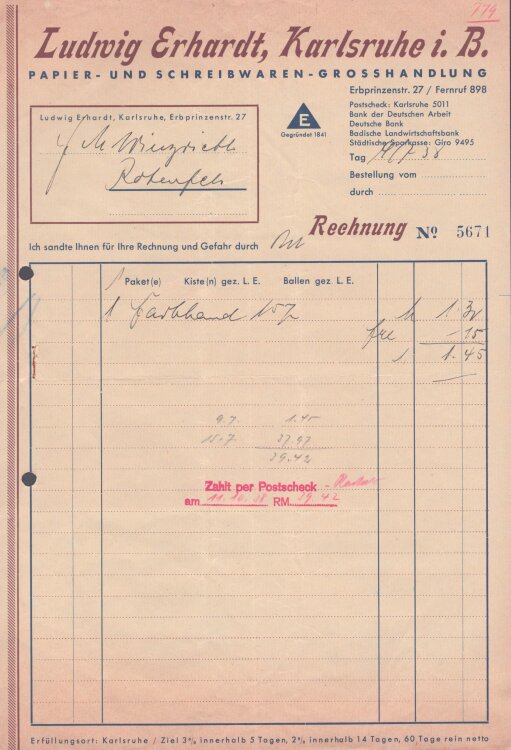 779
Ludwig Erhardt, Karlsruhe i. B.
PAPIER- UND SCHREIBWAREN-GROSSHANDLUNG
Erbprinzenstr. 27 / Fernruf 898
Postscheck: Karlsruhe 5011
Bank der Deutschen Arbeit
Deutsche Bank
Badische Landwirtschaftsbank
Städtische Sparkasse: Giro 9495
E
Gegründet 1841
Ludwig Erhardt, Karlsruhe, Erbprinzenstr. 27
Rotenfels
Tag
Bestellung vom
durch
Rechnung No 5671
Ich sandte Ihnen für Ihre Rechnung und Gefahr durch
1 Paket(e) Kiste(n) gez. L. E. Ballen gez. L. E.
1 Farbband
-15
1.45
9.7. 1.45
15.7. 37.97
39.42
Zahlt per Postscheck
am RM 39.42
Erfüllungsort: Karlsruhe / Ziel 3%, innerhalb 5 Tagen, 2%, innerhalb 14 Tagen, 60 Tage rein netto